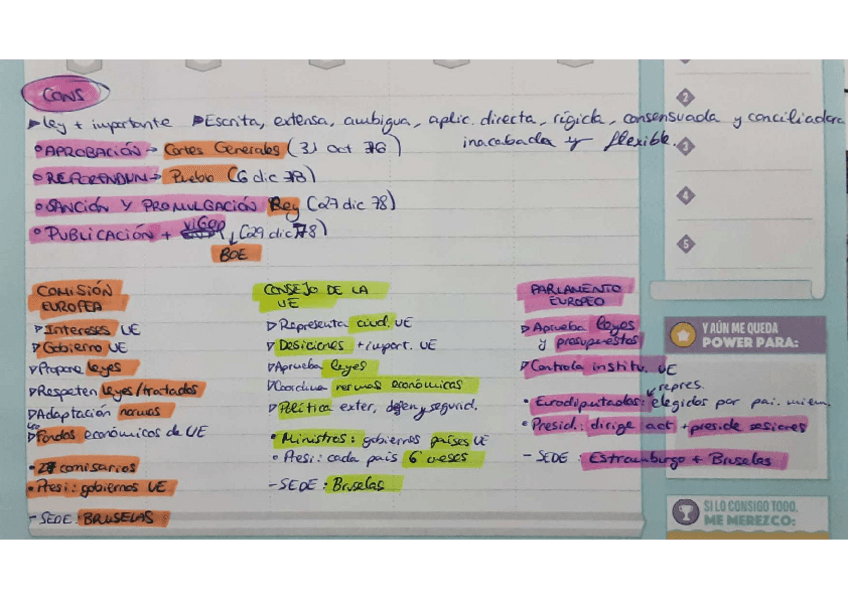 CONS
▸ley + importante ▸Escrita, extensa, ambigua, aplic. directa, rígida, consensuada y conciliadora
inacabada y flexible.
• APROBACIÓN → Cortes Generales (31 oct 78)
• REFERENDUM → Pueblo (6 dic 78)
• SANCIÓN Y PROMULGACIÓN Rey (27 dic 78)
• PUBLICACIÓN + VIGOR (29 dic 78)
↓ BOE
COMISIÓN EUROPEA
▹Intereses UE
▹Gobierno UE
▹Propone leyes
▹Respeten leyes/tratados
▹Adaptación normas
▹Fondos económicos de UE
• 27 comisarios
• Presi: gobiernos UE
- SEDE: BRUSELAS
CONSEJO DE LA UE
▹Representa ciud. UE
▹Desiciones + import. UE
▹Aprueba leyes
▹Coordina normas económicas
▹Política exter, defen y segurid.
• Ministros: gobiernos países UE
• Presi: cada país 6 meses
- SEDE: Bruselas
PARLAMENTO EUROPEO
▹Aprueba leyes
y presupuestos
▹Controla institu. UE
↙repres.
• Eurodiputados: elegidos por pai. miem.
• Presid: dirige act + preside sesiones
- SEDE: Estrasburgo + Bruselas
2
3
4
5
Y AÚN ME QUEDA
POWER PARA:
SI LO CONSIGO TODO,
ME MEREZCO: